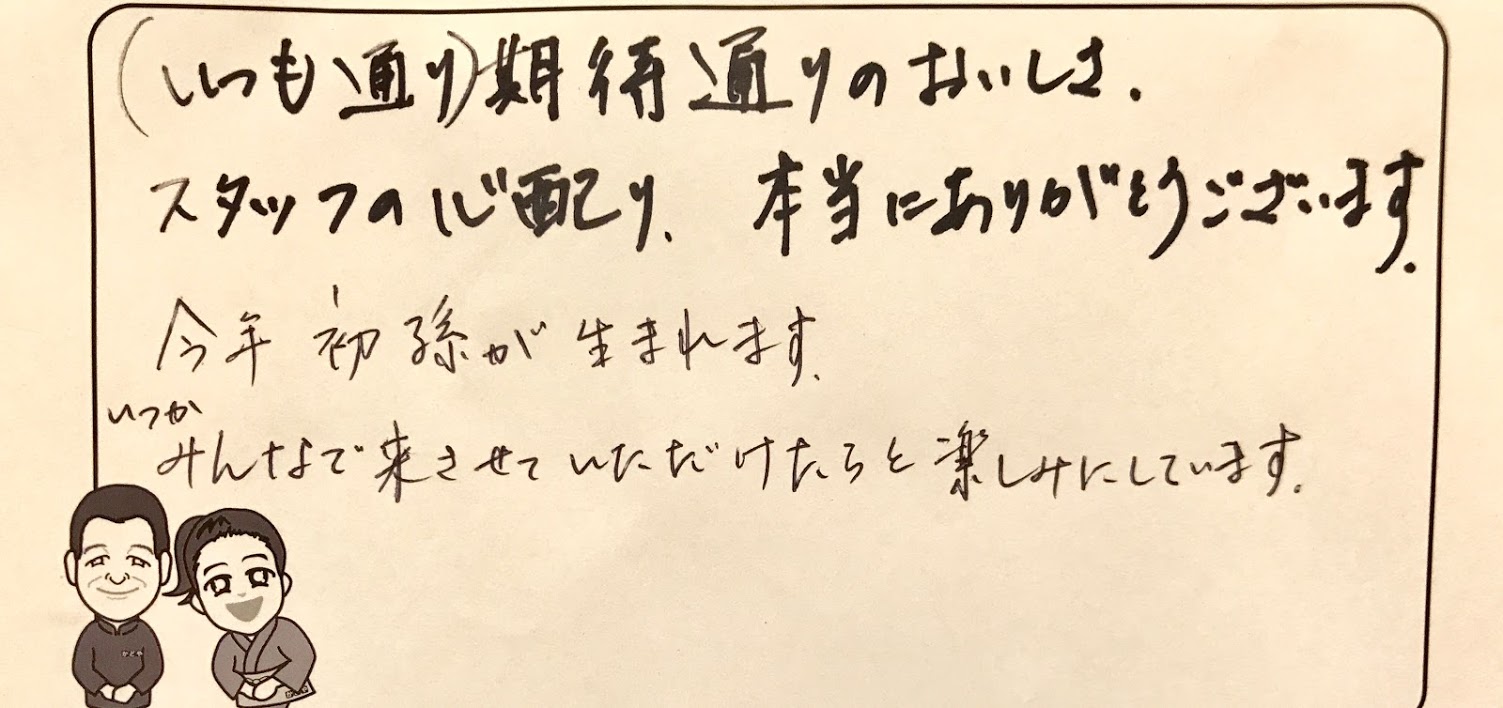 (いつも通り)期待通りのおいしさ.
スタッフの心配り、本当にありがとうございます.
今年 初孫が生まれます.
いつか
みんなで来させていただけたらと楽しみにしています.